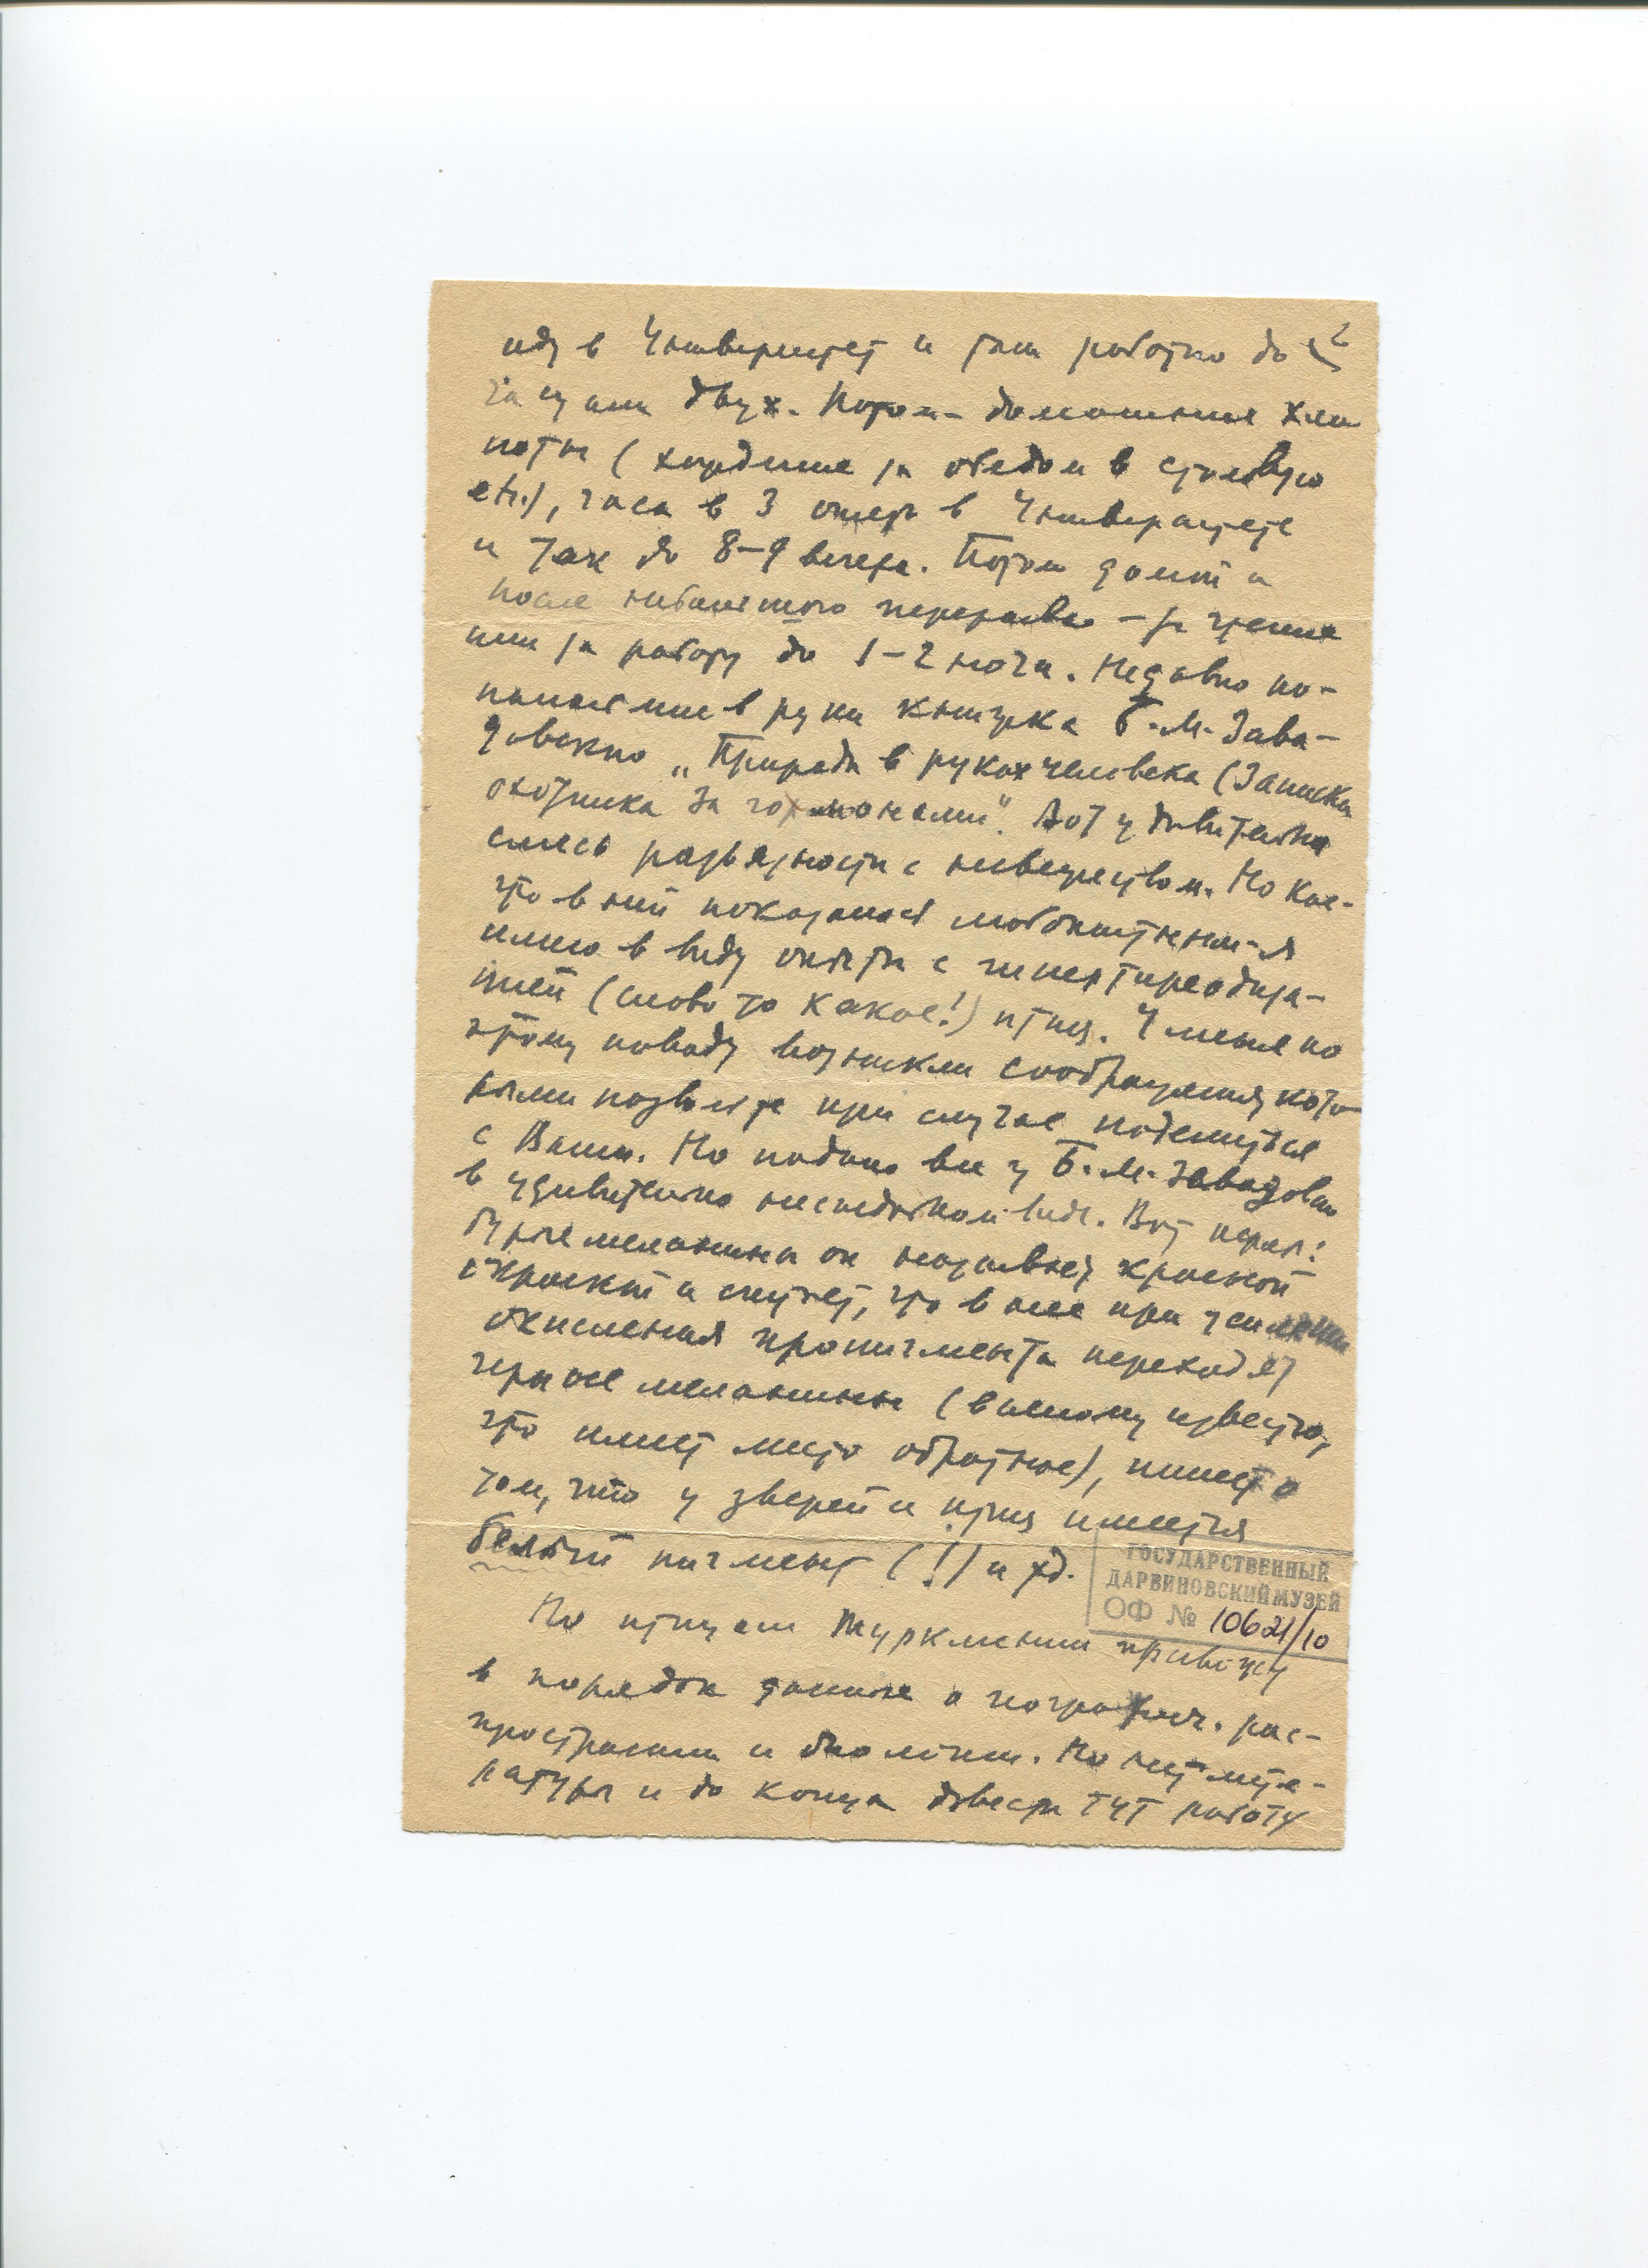 2
иду в Университет и там работаю до
часу или двух. Потом – домашние хло
поты (хождение за обедом в столовую
etc.), часа в 3 опять в Университете
и так до 8–9 вечера. Потом домой и
после небольшого перерыва – за чтение
или за работу до 1–2 ночи. Недавно по-
палась мне в руки книжка Б.М. Зава-
довского „Природа в руках человека (Записки
охотника за гормонами". Вот удивительная
смесь развязности с невежеством. Но кое-
что в ней показалось любопытным – я
имею в виду опыты с гипертиреоидиза-
цией (слово то какое!) птиц. У меня по
этому поводу возникли соображения, кото-
рыми позвольте при случае поделиться
с Вами. Но подано все у Б.М. Завадовского
в удивительно несъедобном виде. Вот перл:
бурые меланины он называет красной
окраской и считает, что в нее при усилении
окисления пропигмента переходят
черные меланины (всякому известно,
что имеет место обратное), пишет о
том, что у зверей и птиц имеется
белый пигмент (!) и тд.
ГОСУДАРСТВЕННЫЙ
ДАРВИНОВСКИЙ МУЗЕЙ
ОФ № 10621/10
По птицам Туркмении привожу
в порядок данные о географич. рас-
пространении и биологии. Но нет лите-
ратуры и до конца довести тут работу